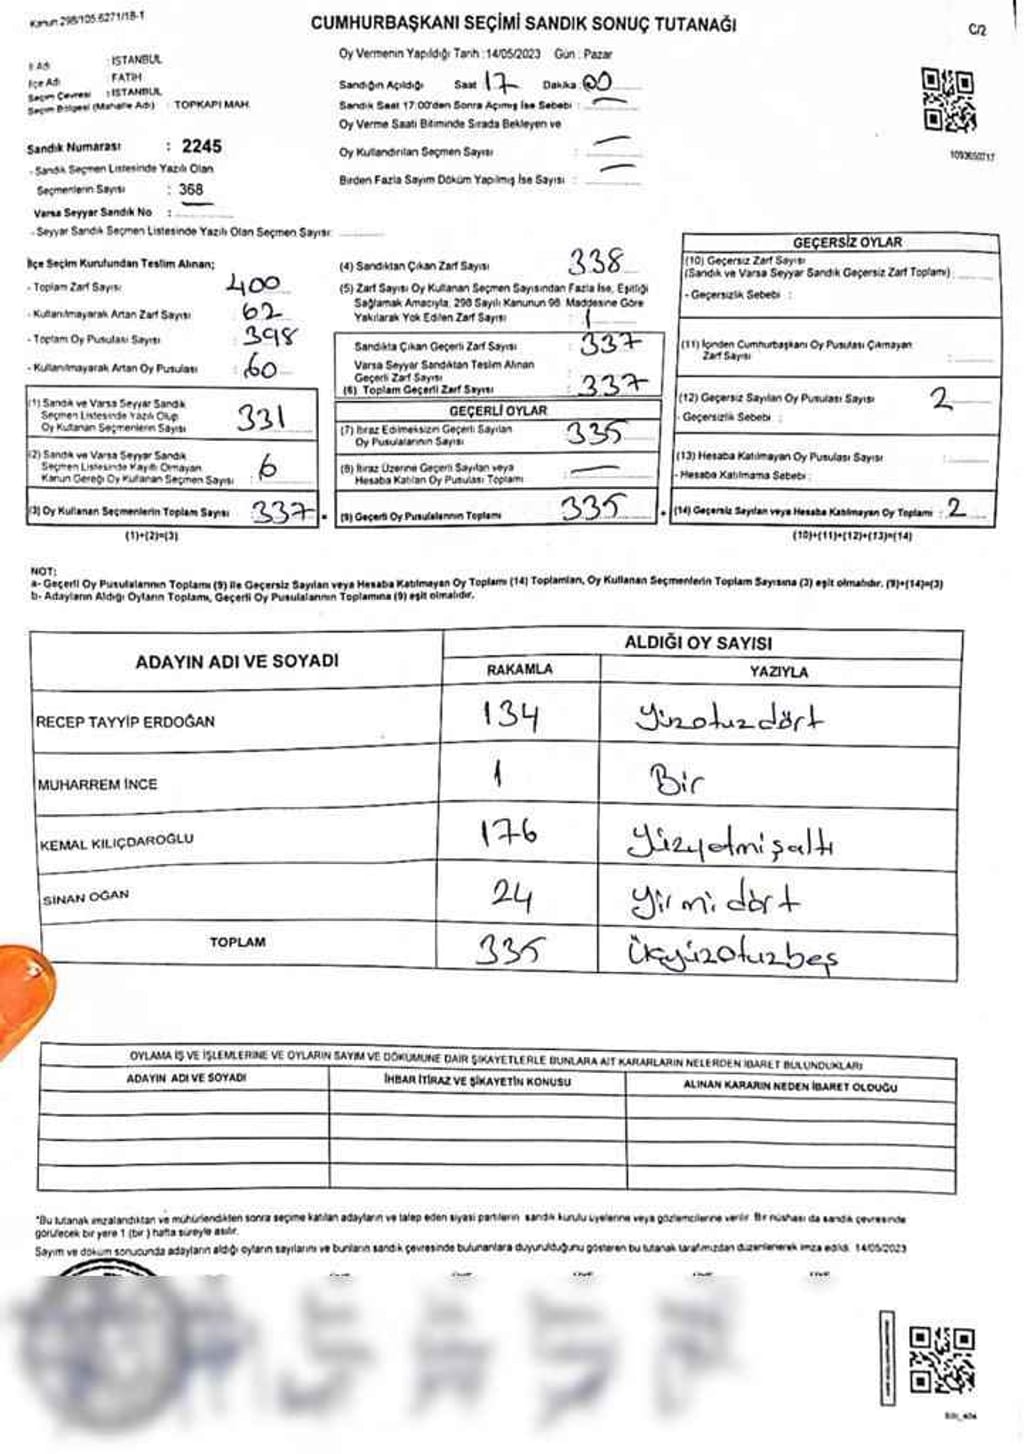 Kanun 298/105.6271/18-1
CUMHURBAŞKANI SEÇİMİ SANDIK SONUÇ TUTANAĞI
C/2
Oy Vermenin Yapıldığı Tarih :14/05/2023 Gün : Pazar
İl Adı : İSTANBUL
İlçe Adı : FATİH
Seçim Çevresi : İSTANBUL
Seçim Bölgesi (Mahalle Adı) : TOPKAPI MAH.
Sandığın Açıldığı Saat 17 Dakika 00
Sandık Saat 17:00'den Sonra Açılmış İse Sebebi : —
Oy Verme Saati Bitiminde Sırada Bekleyen ve
Oy Kullandırılan Seçmen Sayısı : —
Birden Fazla Sayım Döküm Yapılmış İse Sayısı : —
1093650717
Sandık Numarası : 2245
- Sandık Seçmen Listesinde Yazılı Olan
Seçmenlerin Sayısı : 368
Varsa Seyyar Sandık No : —
- Seyyar Sandık Seçmen Listesinde Yazılı Olan Seçmen Sayısı:
İlçe Seçim Kurulundan Teslim Alınan;
- Toplam Zarf Sayısı : 400
- Kullanılmayarak Artan Zarf Sayısı : 62
- Toplam Oy Pusulası Sayısı : 398
- Kullanılmayarak Artan Oy Pusulası : 60
(1) Sandık ve Varsa Seyyar Sandık
Seçmen Listesinde Yazılı Olup
Oy Kullanan Seçmenlerin Sayısı : 331
(2) Sandık ve Varsa Seyyar Sandık
Seçmen Listesinde Kayıtlı Olmayan
Kanun Gereği Oy Kullanan Seçmen Sayısı : 6
(3) Oy Kullanan Seçmenlerin Toplam Sayısı : 337
(1)+(2)=(3)
(4) Sandıktan Çıkan Zarf Sayısı : 338
(5) Zarf Sayısı Oy Kullanan Seçmen Sayısından Fazla İse, Eşitliği
Sağlamak Amacıyla, 298 Sayılı Kanunun 98. Maddesine Göre
Yakılarak Yok Edilen Zarf Sayısı : 1
Sandıkta Çıkan Geçerli Zarf Sayısı : 337
Varsa Seyyar Sandıktan Teslim Alınan
Geçerli Zarf Sayısı :
(6) Toplam Geçerli Zarf Sayısı : 337
GEÇERLİ OYLAR
(7) İtiraz Edilmeksizin Geçerli Sayılan
Oy Pusulalarının Sayısı : 335
(8) İtiraz Üzerine Geçerli Sayılan veya
Hesaba Katılan Oy Pusulası Toplamı : —
(9) Geçerli Oy Pusulalarının Toplamı : 335
GEÇERSİZ OYLAR
(10) Geçersiz Zarf Sayısı
(Sandık ve Varsa Seyyar Sandık Geçersiz Zarf Toplamı) :
- Geçersizlik Sebebi :
(11) İçinden Cumhurbaşkanı Oy Pusulası Çıkmayan
Zarf Sayısı :
(12) Geçersiz Sayılan Oy Pusulası Sayısı : 2
- Geçersizlik Sebebi :
(13) Hesaba Katılmayan Oy Pusulası Sayısı :
- Hesaba Katılmama Sebebi :
(14) Geçersiz Sayılan veya Hesaba Katılmayan Oy Toplamı : 2
(10)+(11)+(12)+(13)=(14)
NOT:
a- Geçerli Oy Pusulalarının Toplamı (9) ile Geçersiz Sayılan veya Hesaba Katılmayan Oy Toplamı (14) Toplamları, Oy Kullanan Seçmenlerin Toplam Sayısına (3) eşit olmalıdır. (9)+(14)=(3)
b- Adayların Aldığı Oyların Toplamı, Geçerli Oy Pusulalarının Toplamına (9) eşit olmalıdır.
ADAYIN ADI VE SOYADI
ALDIĞI OY SAYISI
RAKAMLA YAZIYLA
RECEP TAYYİP ERDOĞAN 134 Yüzotuzdört
MUHARREM İNCE 1 Bir
KEMAL KILIÇDAROĞLU 176 Yüzyetmişaltı
SİNAN OĞAN 24 Yirmidört
TOPLAM 335 Üçyüzotuzbeş
OYLAMA İŞ VE İŞLEMLERİNE VE OYLARIN SAYIM VE DÖKÜMÜNE DAİR ŞİKAYETLERLE BUNLARA AİT KARARLARIN NELERDEN İBARET BULUNDUKLARI
ADAYIN ADI VE SOYADI İHBAR İTİRAZ VE ŞİKAYETİN KONUSU ALINAN KARARIN NEDEN İBARET OLDUĞU
*Bu tutanak imzalandıktan ve mühürlendikten sonra seçime katılan adayların ve talep eden siyasi partilerin sandık kurulu üyelerine veya gözlemcilerine verilir. Bir nüshası da sandık çevresinde
görülecek bir yere 1 (bir) hafta süreyle asılır.
Sayım ve döküm sonucunda adayların aldığı oyların sayılarını ve bunların sandık çevresinde bulunanlara duyurulduğunu gösteren bu tutanak tarafımızdan düzenlenerek imza edildi. 14/05/2023